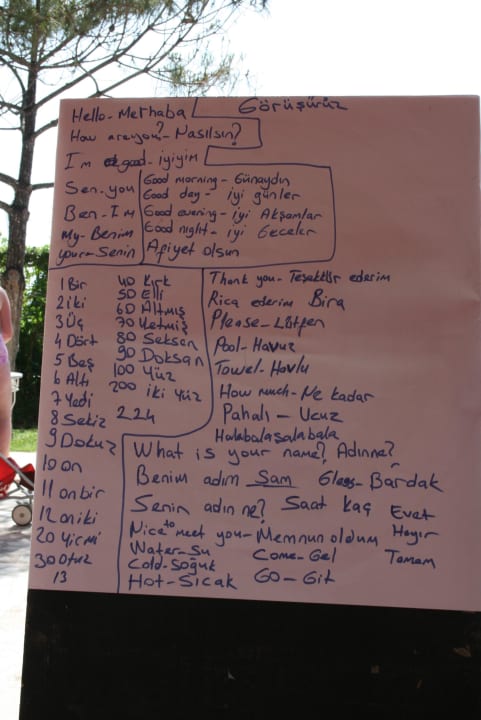 Hello - Merhaba
Görüşürüz
How are you? - Nasılsın?
I'm good - iyiyim
Sen - you
Ben - I'm
My - Benim
your - Senin
Good morning - Günaydın
Good day - iyi günler
Good evening - iyi Akşamlar
Good night - iyi Geceler
Afiyet olsun
1 Bir
2 iki
3 Üç
4 Dört
5 Beş
6 Altı
7 Yedi
8 Sekiz
9 Dokuz
10 on
11 onbir
12 oniki
20 Yirmi
30 Otuz
13
40 Kırk
50 Elli
60 Altmış
70 Yetmiş
80 Seksan
90 Doksan
100 Yüz
200 iki Yüz
224
Thank you - Teşekkür ederim
Rica ederim Bira
Please - Lütfen
Pool - Havuz
Towel - Havlu
How much - Ne kadar
Pahalı - Ucuz
Halabalaşalabala
What is your name? Adınne?
Benim adım Sam Glass - Bardak
Senin adın ne? Saat kaç Evet
Nice to meet you - Memnun oldum Hayır
Water - Su Come - Gel Tamam
Cold - Soğuk
Hot - Sıcak Go - Git